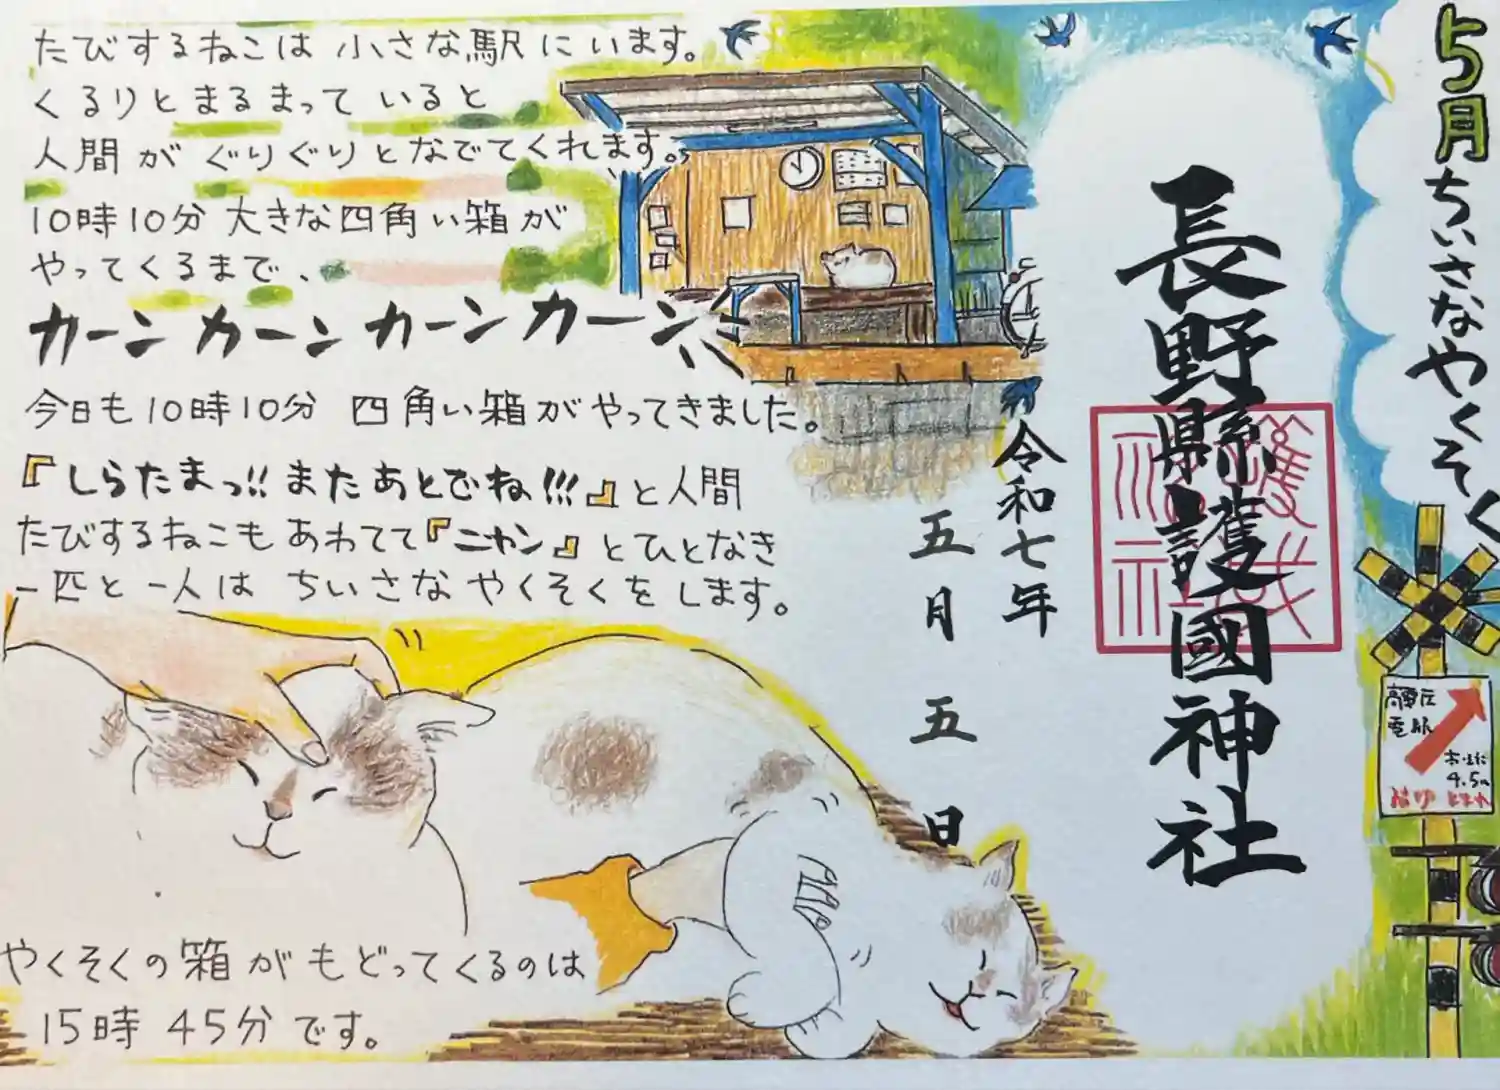 5月 ちいさなやくそく
たびするねこは 小さな駅にいます。
くるりとまるまって いると
人間が ぐりぐりとなでてくれます。
10時10分 大きな四角い箱が
やってくるまで、
カーン カーン カーン カーン
今日も10時10分 四角い箱がやってきました。
『しらたまっ!! またあとでね!!!』と人間
たびするねこも あわてて『ニャン』とひとなき
一匹と一人は ちいさなやくそくをします。
やくそくの箱がもどってくるのは
15時45分です。
長野縣護國神社
令和七年
五月五日
高電圧
4.5m